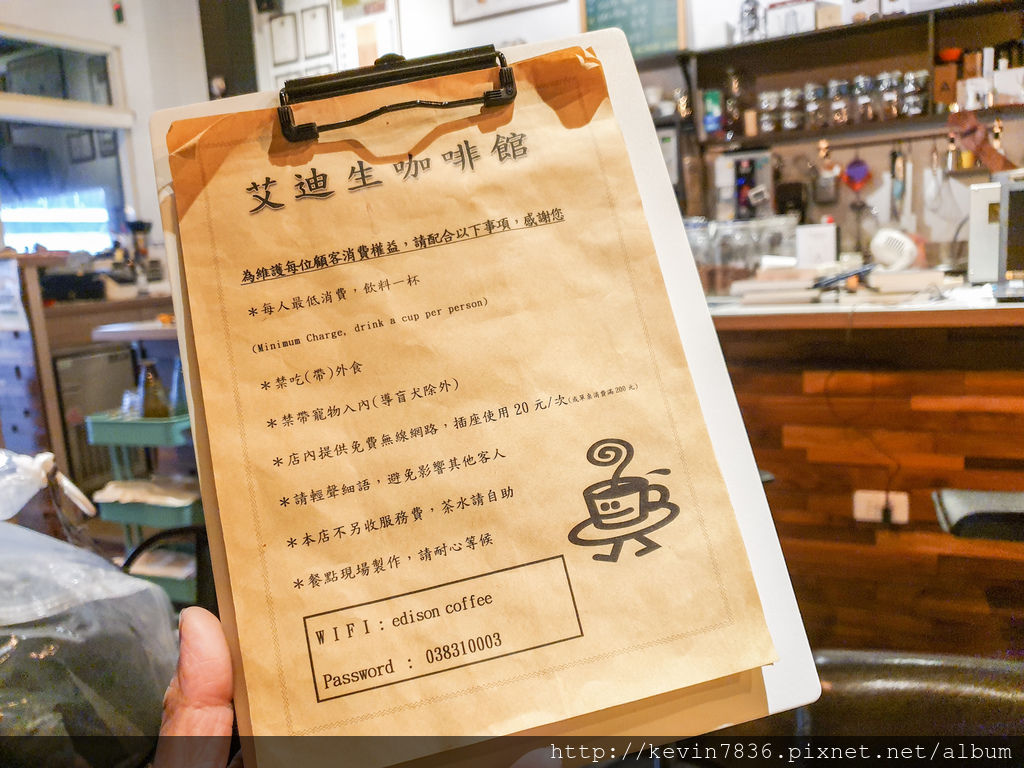 艾迪生咖啡館
為維護每位顧客消費權益，請配合以下事項，感謝您
＊每人最低消費，飲料一杯
(Minimum Charge, drink a cup per person)
＊禁吃(帶)外食
＊禁帶寵物入內(導盲犬除外)
＊店內提供免費無線網路，插座使用 20 元/次(或單桌消費滿 200 元)
＊請輕聲細語，避免影響其他客人
＊本店不另收服務費，茶水請自助
＊餐點現場製作，請耐心等候
ＷＩＦＩ：edison coffee
Password ： 038310003
http://kevin7836.pixnet.net/album